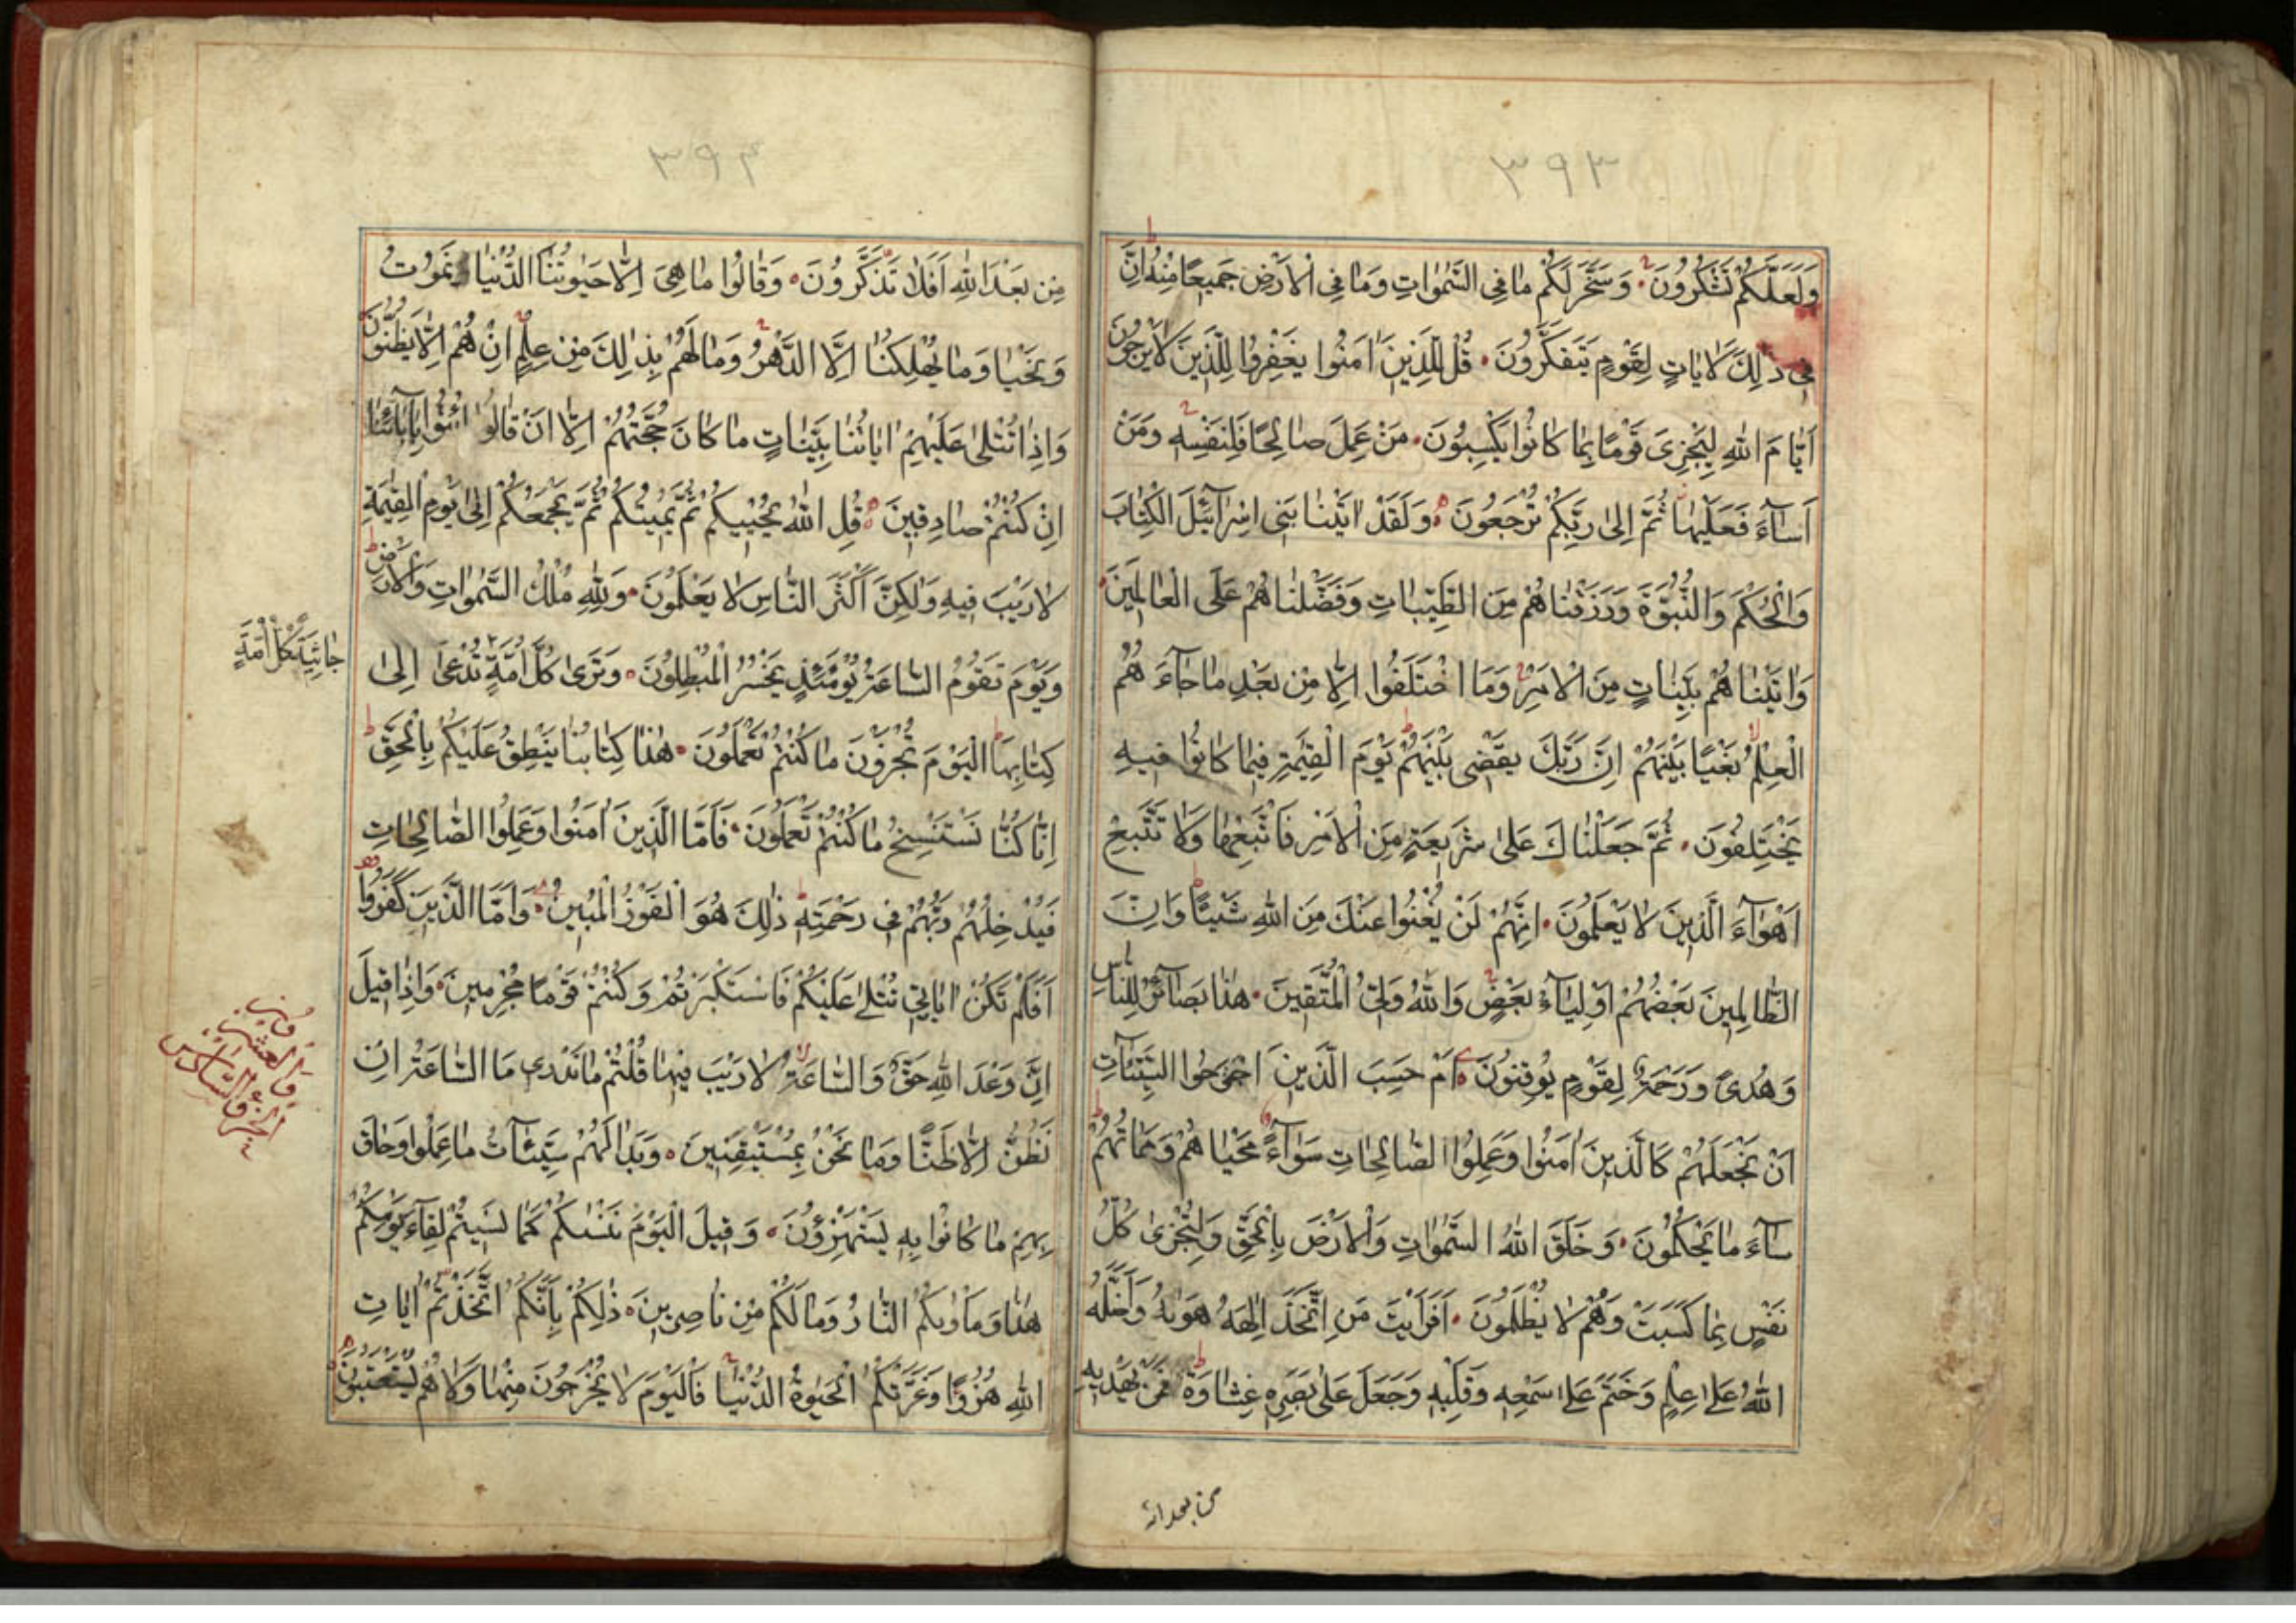 ٣٩٣
وَلَعَلَّكُمْ تَشْكُرُونَ وَسَخَّرَ لَكُمْ مَا فِى السَّمٰوَاتِ وَمَا فِى الْاَرْضِ جَمِيعًا مِنْهُ اِنَّ
فِى ذٰلِكَ لَاٰيَاتٍ لِقَوْمٍ يَتَفَكَّرُونَ قُلْ لِلَّذِينَ اٰمَنُوا يَغْفِرُوا لِلَّذِينَ لَا يَرْجُونَ
اَيَّامَ اللّٰهِ لِيَجْزِىَ قَوْمًا بِمَا كَانُوا يَكْسِبُونَ مَنْ عَمِلَ صَالِحًا فَلِنَفْسِهِ وَمَنْ
اَسَآءَ فَعَلَيْهَا ثُمَّ اِلٰى رَبِّكُمْ تُرْجَعُونَ وَلَقَدْ اٰتَيْنَا بَنِى اِسْرَآئِيلَ الْكِتَابَ
وَالْحُكْمَ وَالنُّبُوَّةَ وَرَزَقْنَاهُمْ مِنَ الطَّيِّبَاتِ وَفَضَّلْنَاهُمْ عَلَى الْعَالَمِينَ
وَاٰتَيْنَاهُمْ بَيِّنَاتٍ مِنَ الْاَمْرِ وَمَا اخْتَلَفُوا اِلَّا مِنْ بَعْدِ مَا جَآءَ هُمُ
الْعِلْمُ بَغْيًا بَيْنَهُمْ اِنَّ رَبَّكَ يَقْضِى بَيْنَهُمْ يَوْمَ الْقِيٰمَةِ فِيمَا كَانُوا فِيهِ
يَخْتَلِفُونَ ثُمَّ جَعَلْنَاكَ عَلٰى شَرِيعَةٍ مِنَ الْاَمْرِ فَاتَّبِعْهَا وَلَا تَتَّبِعْ
اَهْوَآءَ الَّذِينَ لَا يَعْلَمُونَ اِنَّهُمْ لَنْ يُغْنُوا عَنْكَ مِنَ اللّٰهِ شَيْئًا وَاِنَّ
الظَّالِمِينَ بَعْضُهُمْ اَوْلِيَآءُ بَعْضٍ وَاللّٰهُ وَلِىُّ الْمُتَّقِينَ هٰذَا بَصَآئِرُ لِلنَّاسِ
وَهُدًى وَرَحْمَةٌ لِقَوْمٍ يُوقِنُونَ اَمْ حَسِبَ الَّذِينَ اجْتَرَحُوا السَّيِّئَآتِ
اَنْ نَجْعَلَهُمْ كَالَّذِينَ اٰمَنُوا وَعَمِلُوا الصَّالِحَاتِ سَوَآءً مَحْيَاهُمْ وَمَمَاتُهُمْ
سَآءَ مَا يَحْكُمُونَ وَخَلَقَ اللّٰهُ السَّمٰوَاتِ وَالْاَرْضَ بِالْحَقِّ وَلِتُجْزٰى كُلُّ
نَفْسٍ بِمَا كَسَبَتْ وَهُمْ لَا يُظْلَمُونَ اَفَرَاَيْتَ مَنِ اتَّخَذَ اِلٰهَهُ هَوٰيهُ وَاَضَلَّهُ
اللّٰهُ عَلٰى عِلْمٍ وَخَتَمَ عَلٰى سَمْعِهِ وَقَلْبِهِ وَجَعَلَ عَلٰى بَصَرِهِ غِشَاوَةً فَمَنْ يَهْدِيهِ
من بعد الله
٣٩٤
مِنْ بَعْدِ اللّٰهِ اَفَلَا تَذَكَّرُونَ وَقَالُوا مَا هِىَ اِلَّا حَيٰوتُنَا الدُّنْيَا نَمُوتُ
وَنَحْيَا وَمَا يُهْلِكُنَا اِلَّا الدَّهْرُ وَمَا لَهُمْ بِذٰلِكَ مِنْ عِلْمٍ اِنْ هُمْ اِلَّا يَظُنُّونَ
وَاِذَا تُتْلٰى عَلَيْهِمْ اٰيَاتُنَا بَيِّنَاتٍ مَا كَانَ حُجَّتَهُمْ اِلَّا اَنْ قَالُوا ائْتُوا بِاٰبَآئِنَا
اِنْ كُنْتُمْ صَادِقِينَ قُلِ اللّٰهُ يُحْيِيكُمْ ثُمَّ يُمِيتُكُمْ ثُمَّ يَجْمَعُكُمْ اِلٰى يَوْمِ الْقِيٰمَةِ
لَا رَيْبَ فِيهِ وَلٰكِنَّ اَكْثَرَ النَّاسِ لَا يَعْلَمُونَ وَلِلّٰهِ مُلْكُ السَّمٰوَاتِ وَالْاَرْضِ
وَيَوْمَ تَقُومُ السَّاعَةُ يَوْمَئِذٍ يَخْسَرُ الْمُبْطِلُونَ وَتَرٰى كُلَّ اُمَّةٍ تُدْعٰى اِلٰى
جَاثِيَةً كُلُّ اُمَّةٍ
كِتَابِهَا اَلْيَوْمَ تُجْزَوْنَ مَا كُنْتُمْ تَعْمَلُونَ هٰذَا كِتَابُنَا يَنْطِقُ عَلَيْكُمْ بِالْحَقِّ
اِنَّا كُنَّا نَسْتَنْسِخُ مَا كُنْتُمْ تَعْمَلُونَ فَاَمَّا الَّذِينَ اٰمَنُوا وَعَمِلُوا الصَّالِحَاتِ
فَيُدْخِلُهُمْ رَبُّهُمْ فِى رَحْمَتِهِ ذٰلِكَ هُوَ الْفَوْزُ الْمُبِينُ وَاَمَّا الَّذِينَ كَفَرُوا
اَفَلَمْ تَكُنْ اٰيَاتِى تُتْلٰى عَلَيْكُمْ فَاسْتَكْبَرْتُمْ وَكُنْتُمْ قَوْمًا مُجْرِمِينَ وَاِذَا قِيلَ
اِنَّ وَعْدَ اللّٰهِ حَقٌّ وَالسَّاعَةُ لَا رَيْبَ فِيهَا قُلْتُمْ مَا نَدْرِى مَا السَّاعَةُ اِنْ
نَظُنُّ اِلَّا ظَنًّا وَمَا نَحْنُ بِمُسْتَيْقِنِينَ وَبَدَا لَهُمْ سَيِّئَآتُ مَا عَمِلُوا وَحَاقَ
بِهِمْ مَا كَانُوا بِهِ يَسْتَهْزِؤُنَ وَقِيلَ الْيَوْمَ نَنْسٰيكُمْ كَمَا نَسِيتُمْ لِقَآءَ يَوْمِكُمْ
هٰذَا وَمَاْوٰيكُمُ النَّارُ وَمَا لَكُمْ مِنْ نَاصِرِينَ ذٰلِكُمْ بِاَنَّكُمُ اتَّخَذْتُمْ اٰيَاتِ
اللّٰهِ هُزُوًا وَغَرَّتْكُمُ الْحَيٰوةُ الدُّنْيَا فَالْيَوْمَ لَا يُخْرَجُونَ مِنْهَا وَلَا هُمْ يُسْتَعْتَبُونَ